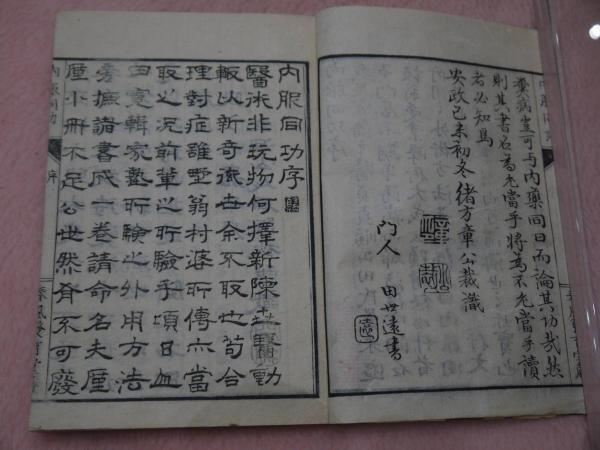 可与内藥同日而論其功哉然
則其書名為允當乎將為不允當乎讀
者必知焉
安政己未初冬緒方章公裁識
门人 田世遠書
内服同功序
醫術非玩物何擇新陳世醫動
輙以新奇衒世余不取也苟合
理對症雖野翁村婆所傳亦當
取之况前輩之所驗乎頃日皿
田寛輯家塾所驗之外用方法
旁摭諸書成一卷請命名夫區
區小冊不足公世然有不可廢
内服同功
序